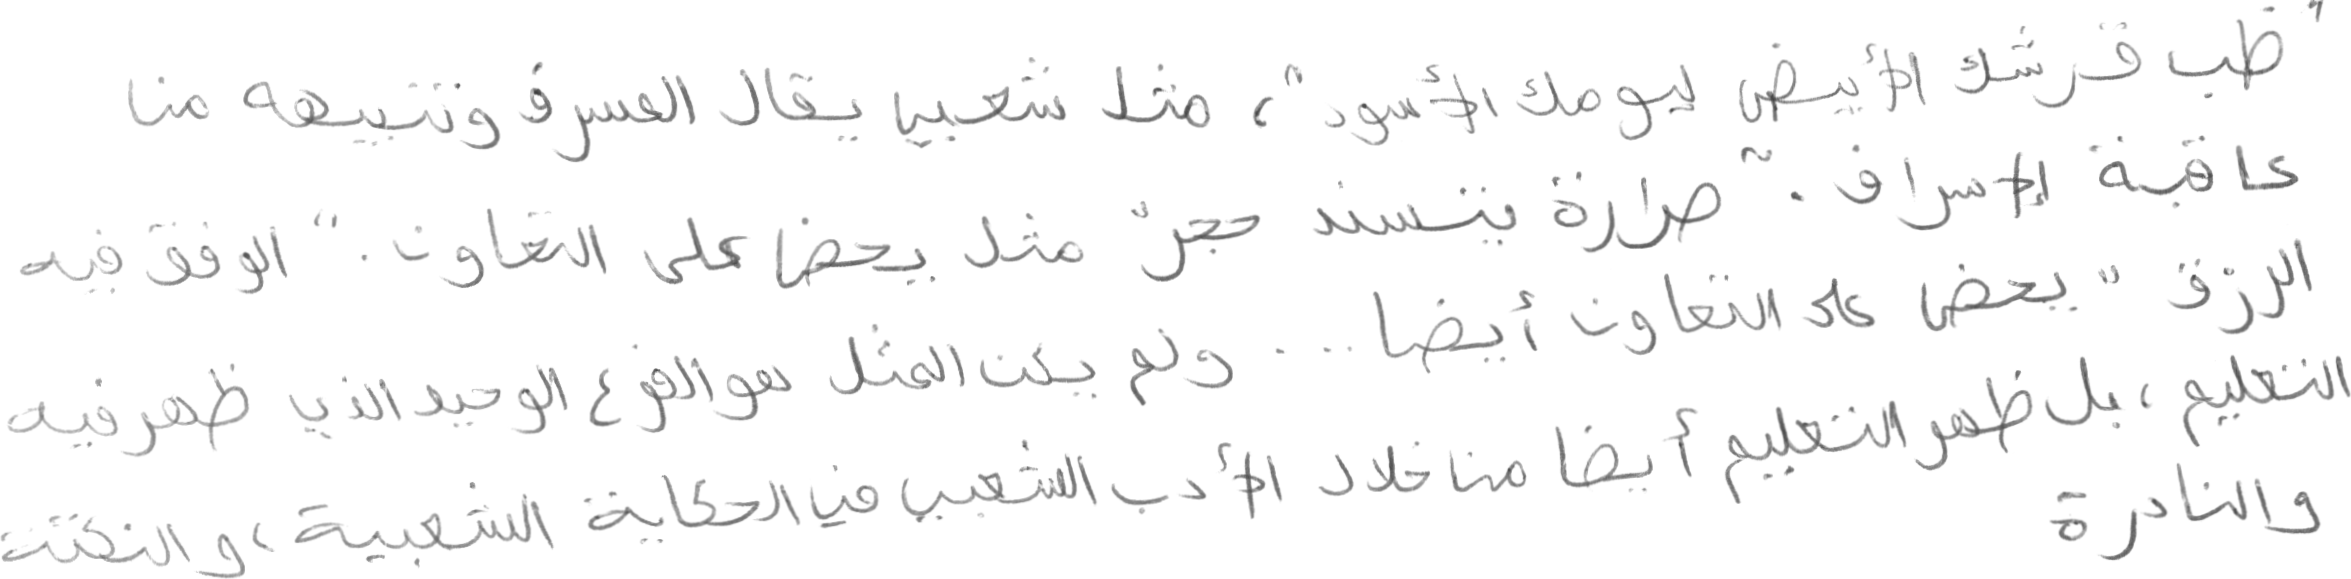 "خب قرشك الأبيض ليومك الأسود"، مثل شعبي يقال المسرف وتنبيهه من
عاقبة الإسراف. "صرارة يتسند حجر" مثل يحض على التعاون. "الوفق فيه
الرزق" يحض على التعاون أيضا... ولم يكن المثل هو الفرع الوحيد الذي ظهر فيه
التعليم، بل ظهر التعليم أيضا من خلال الأدب الشعبي في الحكاية الشعبية، والنكتة
والنادرة